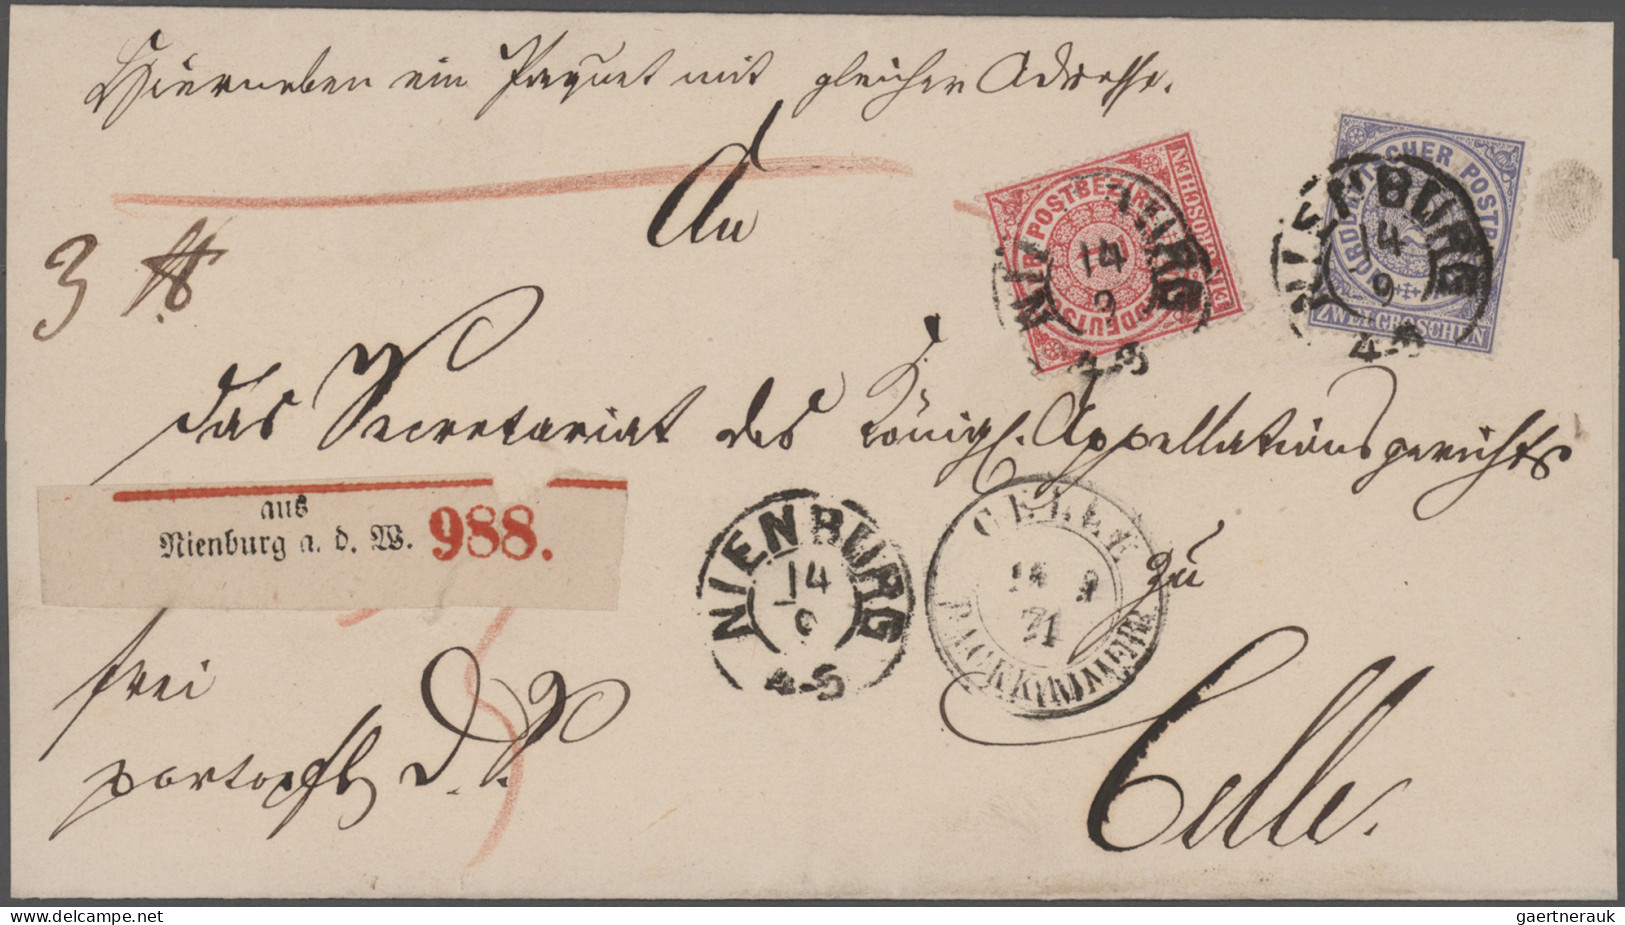 Hierneben ein Paquet mit gleicher Adresse.
An
3 ℔
NORDDEUTSCHER POSTBEZIRK
EIN GROSCHEN
NIENBURG
14
9
4-5
NORDDEUTSCHER POSTBEZIRK
ZWEI GROSCHEN
NIENBURG
14
9
4-5
das Secretariat des Königl. Appellationsgerichts
aus
Nienburg a. d. W. 988.
NIENBURG
14
9
4-5
CELLE
14 9
71
PACKKAMMER
zu
Celle.
frei
portopfl. D. S.
www.delcampe.net
gaertnerauk